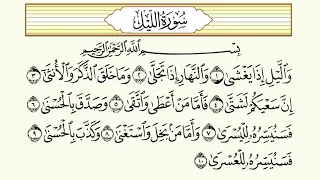 سُورَةُ اللَّيْلِ
بِسْمِ اللَّهِ الرَّحْمَٰنِ الرَّحِيمِ
وَاللَّيْلِ إِذَا يَغْشَىٰ ١ وَالنَّهَارِ إِذَا تَجَلَّىٰ ٢ وَمَا خَلَقَ الذَّكَرَ وَالْأُنثَىٰ ٣
إِنَّ سَعْيَكُمْ لَشَتَّىٰ ٤ فَأَمَّا مَنْ أَعْطَىٰ وَاتَّقَىٰ ٥ وَصَدَّقَ بِالْحُسْنَىٰ ٦
فَسَنُيَسِّرُهُ لِلْيُسْرَىٰ ٧ وَأَمَّا مَن بَخِلَ وَاسْتَغْنَىٰ ٨ وَكَذَّبَ بِالْحُسْنَىٰ ٩
فَسَنُيَسِّرُهُ لِلْعُسْرَىٰ ١٠